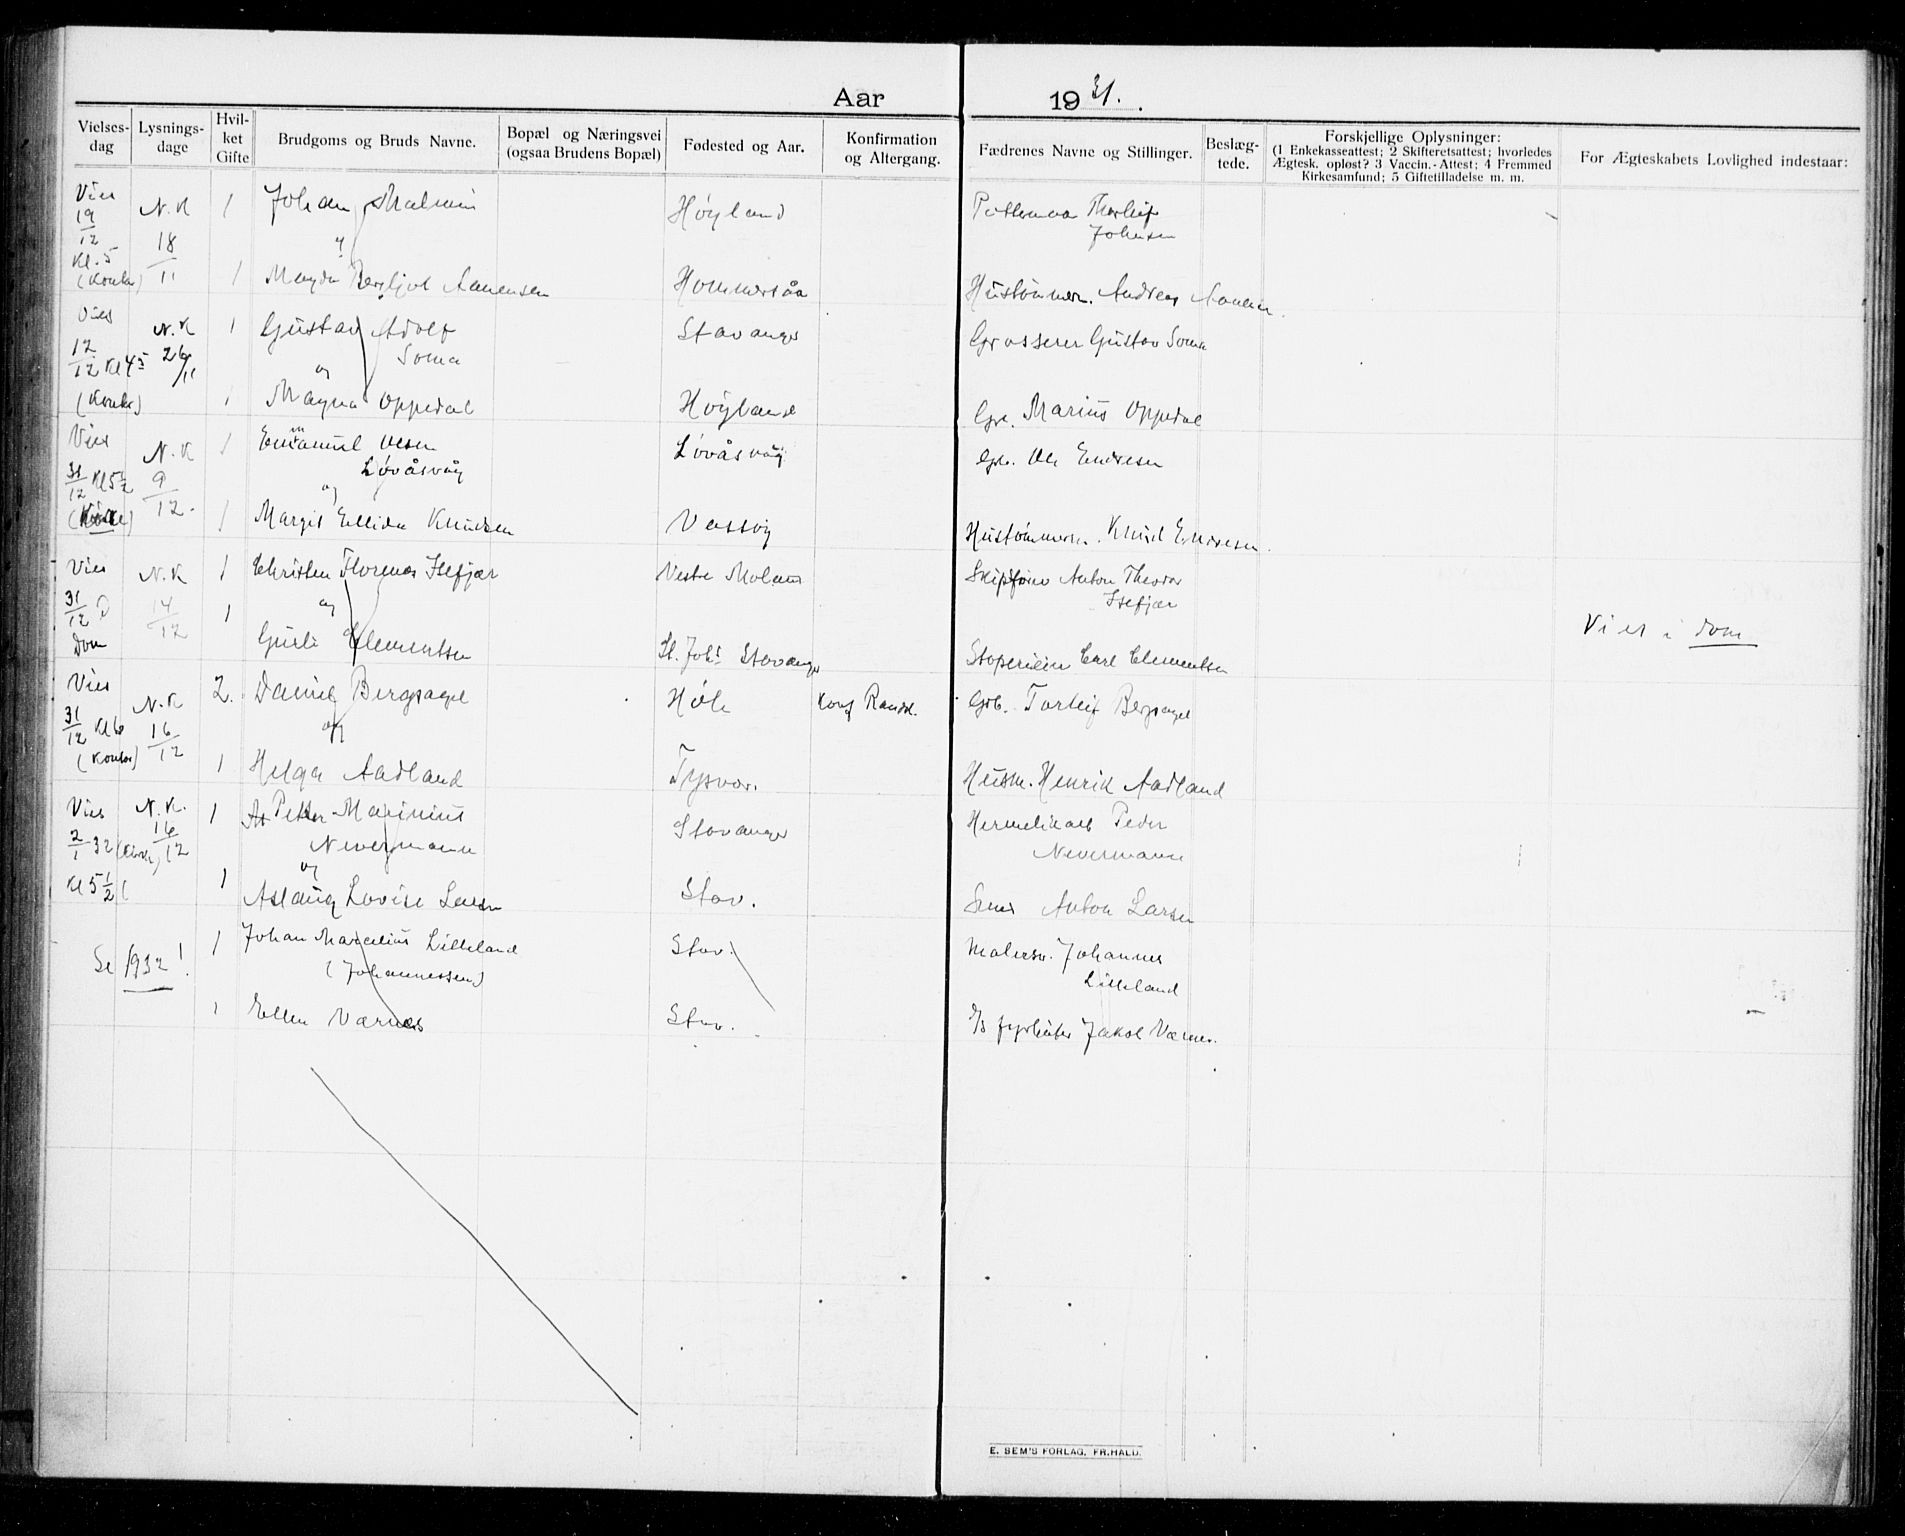 Aar 1931.
Vielses-
dag
Lysnings-
dage
Hvil-
ket
Gifte
Brudgoms og Bruds Navne.
Bopæl og Næringsvei
(ogsaa Brudens Bopæl)
Fødested og Aar.
Konfirmation
og Altergang.
Fædrenes Navne og Stillinger.
Beslæg-
tede.
Forskjellige Oplysninger:
(1 Enkekasseattest; 2 Skifteretsattest; hvorledes
Ægtesk. opløst? 3 Vaccin.-Attest; 4 Fremmed
Kirkesamfund; 5 Giftetilladelse m. m.
For Ægteskabets Lovlighed indestaar:
Vies 19/12 Kl. 5 (Kontor)
N. K 18/11
1 Johan Malmin Høyland Thorleif
Johnsen
1 Magda Bergljot Aanensen Hommersåa Hustømmerm. Andreas Aanensen.
Vies 12/12 Kl 4 (Kontor)
N. K 26/11
1 Gustav Adolf Stavanger Grosserer Gustav Soma
Soma
og
1 Magna Oppedal Høyland Gbr. Marius Oppedal
Vies 31/12 Kl 5½
N. K 9/12.
1 Emanuel Olsen Løvåsvåg Gbr. Ole Endresen
Løvåsvåg
og
1 Margit Ellida Knudsen Vassøy Hustømmerm. Knud Endresen.
Vies 31/12 Dom
N. K 14/12
1 Christen Florenas Isefjær Vestre Moland Skipsfører Anton Theodor
og Isefjær
1 Clementsen St. Johs Stavanger Carl Clementsen
Vies i dom
Vies 31/12 Kl 6 (Kontor)
N. K 16/12
2. Daniel Bergsagel Høle Konf Rand. Gbr. Torleif Bergsagel
og
1 Helga Aadland Tysvær. Husm. Henrik Aadland
Vies 2/1 32 (Kirke) Kl 5½
N. K. 16/12
1 Petter Marinius Stavanger Hermetikarb Peder
Nevermann Nevermann
og
1 Aslaug Lovise Larsen Stav. Anton Larsen
Se 1932!
1 Johan Marcelius Lilleland Stav. Malersv. Johannes
(Johannessen) Lilleland
1 Ellen Varnes Stav. fyrbøter Jakob Varnes.
E. SEM'S FORLAG, FR.HALD.